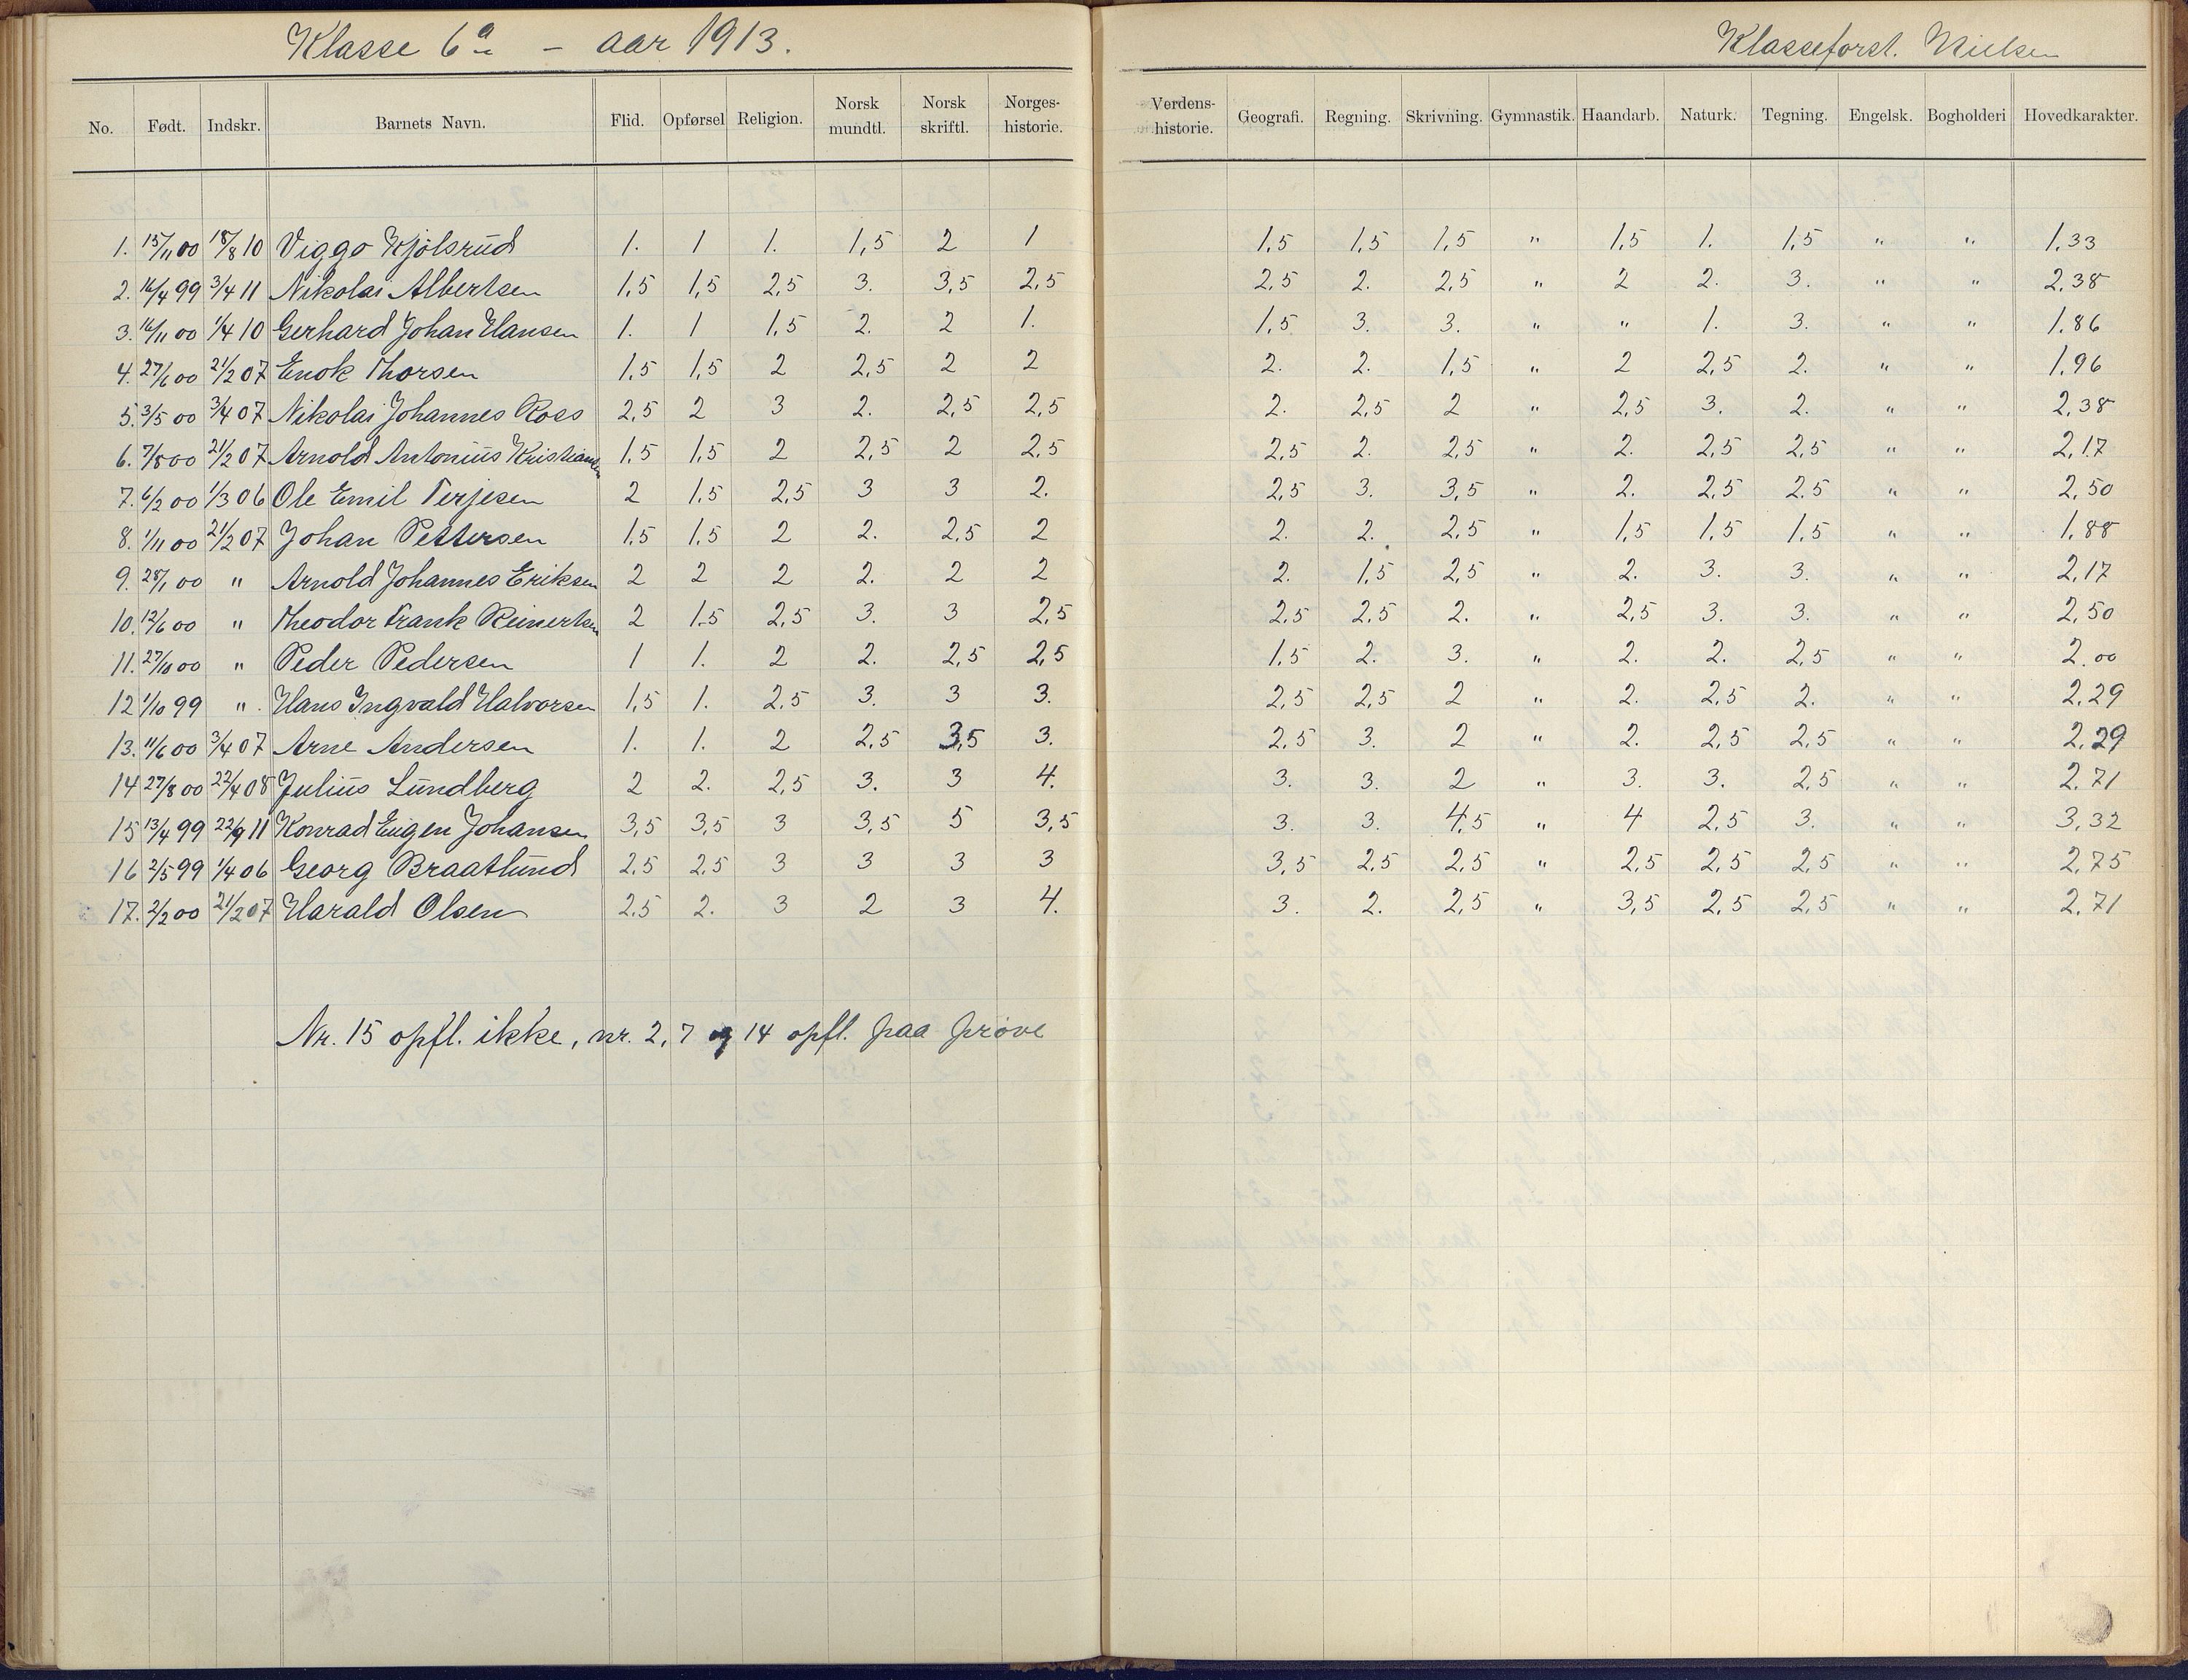 Klasse 6a - aar 1913. Klasseforst. Nielsen
No. Født. Indskr. Barnets Navn. Flid. Opførsel Religion. Norsk mundtl. Norsk skriftl. Norges-historie. Verdens-historie. Geografi. Regning. Skrivning. Gymnastik. Haandarb. Naturk. Tegning. Engelsk. Bogholderi Hovedkarakter.
1. 15/11 00 18/8 10 Viggo Kjølsrud 1. 1 1. 1,5 2 1 1,5 1,5 1,5 " 1,5 1. 1,5 " " 1,33
2. 16/4 99 3/4 11 Nikolai Albertsen 1,5 1,5 2,5 3. 3,5 2,5 2,5 2. 2,5 " 2 2. 3. " " 2,38
3. 16/11 00 1/4 10 Gerhard Johan Hansen 1. 1 1,5 2. 2 1. 1,5 3. 3. " " 1. 3. " " 1.86
4. 27/6 00 21/2 07 Enok Thorsen 1,5 1,5 2 2,5 2 2 2. 2. 1,5 " 2 2,5 2. " " 1,96
5. 3/5 00 3/4 07 Nikolai Johannes Ross 2,5 2 3 2. 2,5 2,5 2. 2,5 2 " 2,5 3. 2. " " 2,38
6. 7/8 00 21/2 07 Arnold Antonius Kristiansen 1,5 1,5 2 2,5 2 2,5 2,5 2. 2,5 " 2. 2,5 2,5 " " 2,17
7. 6/2 00 1/3 06 Ole Emil Terjesen 2 1,5 2,5 3 3 2. 2,5 3. 3,5 " 2. 2,5 2.5 " " 2,50
8. 1/11 00 21/2 07 Johan Pettersen 1,5 1,5 2 2. 2,5 2 2. 2. 2,5 " 1,5 1,5 1,5 " " 1,88
9. 28/1 00 " Arnold Johannes Eriksen 2 2 2 2. 2 2 2. 1,5 2,5 " 2. 3. 3. " " 2,17
10. 12/6 00 " Theodor Frank Reinertsen 2 1.5 2,5 3. 3 2,5 2.5 2,5 2. " 2,5 3. 3. " " 2,50
11. 27/10 00 " Peder Pedersen 1 1. 2 2. 2,5 2,5 1,5 2. 3. " 2. 2. 2,5 " " 2.00
12 1/10 99 " Hans Ingvald Halvorsen 1,5 1. 2.5 3. 3 3. 2,5 2,5 2 " 2. 2,5 2. " " 2.29
13. 11/6 00 3/4 07 Arne Andersen 1. 1. 2 2,5 3,5 3. 2.5 3. 2 " 2. 2,5 2,5 " " 2.29
14 27/8 00 22/4 08 Julius Lundberg 2 2. 2,5 3. 3 4. 3. 3. 2 " 3. 3. 2,5 " " 2.71
15 13/4 99 22/9 11 Konrad Eugen Johansen 3,5 3,5 3 3,5 5 3,5 3. 3. 4,5 " 4 2,5 3. " " 3,32
16 2/5 99 1/4 06 Georg Braatlund 2,5 2,5 3 3 3 3 3,5 2,5 2,5 " 2,5 2,5 2,5 " " 2,75
17. 2/2 00 21/2 07 Harald Olsen 2.5 2. 3 2 3 4. 3. 2. 2,5 " 3,5 2,5 2,5 " " 2,71
Nr. 15 opfl. ikke, nr. 2, 7 og 14 opfl. paa prøve